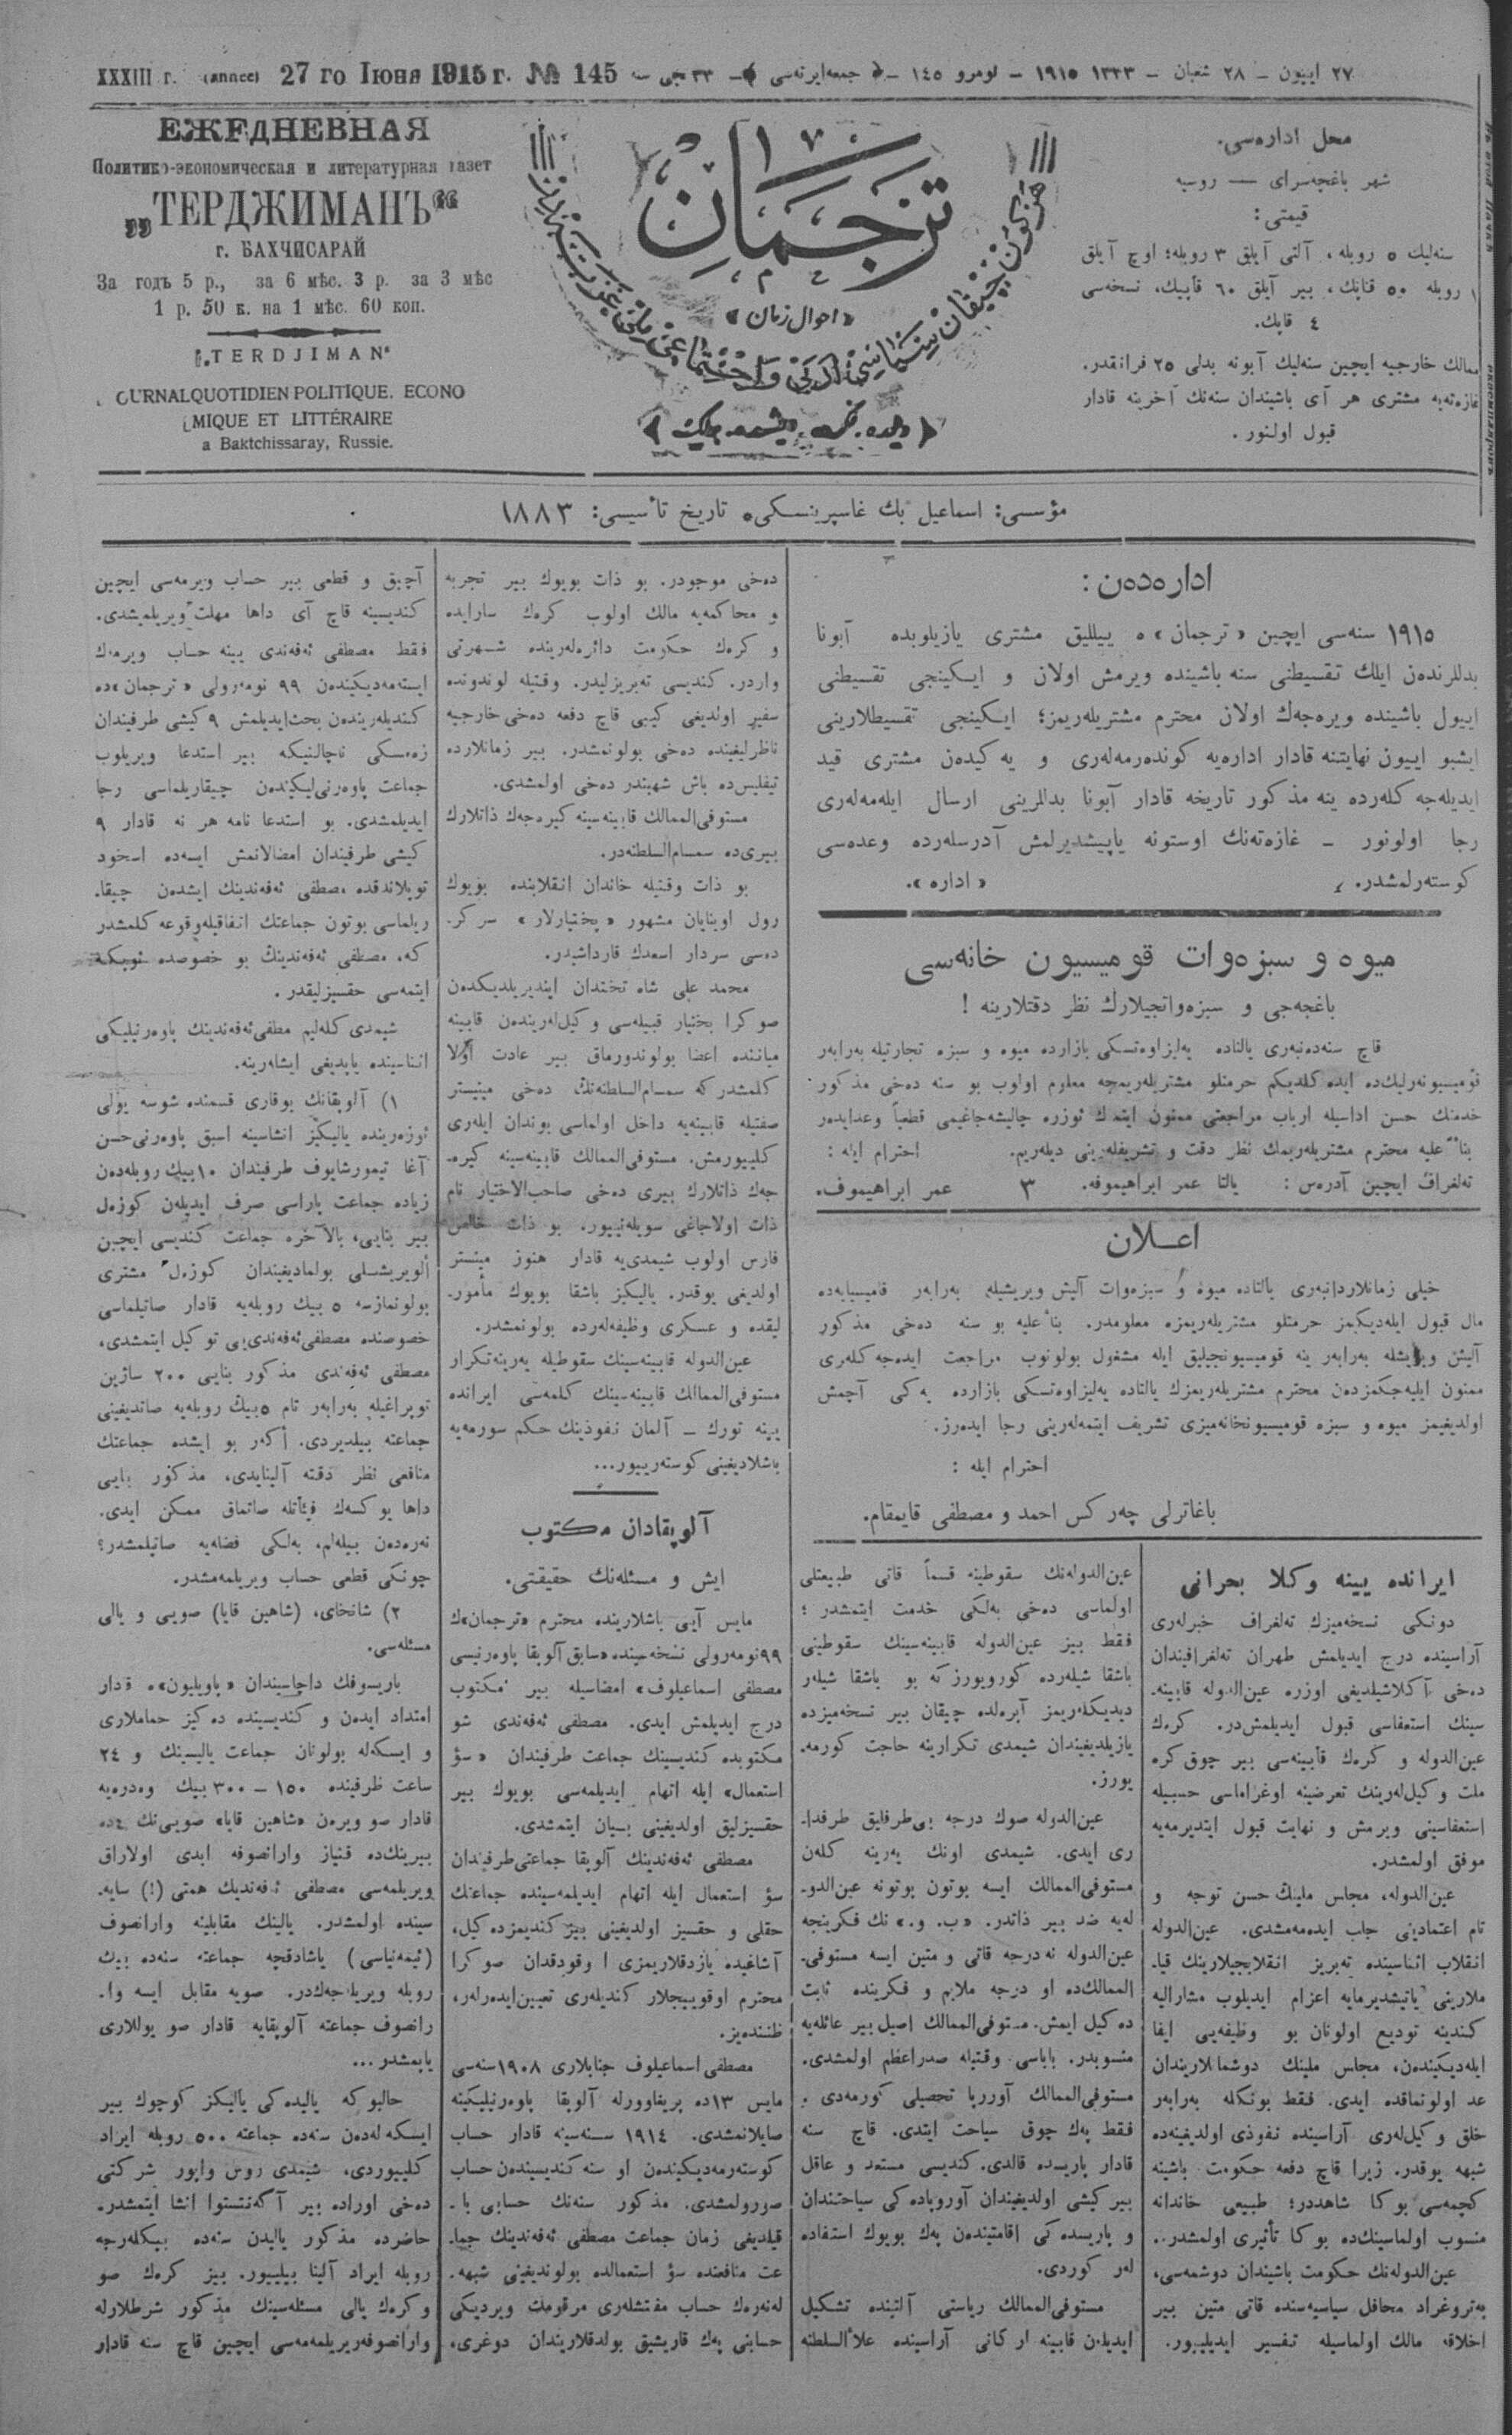 XXXIII г. (année) 27 го Іюня 1915 г. № 145
٢٧ اییون – ٢٨ شعبان – ١٣٣٣ ١٩١٥ – نومرو ١٤٥ – ﴿ جمعه‌ایرته‌سی ﴾ – ٣٣ جی سنه
ЕЖЕДНЕВНАЯ
Политико-экономическая и литературная газет
„ТЕРДЖИМАНЪ“
г. БАХЧИСАРАЙ
За годъ 5 р., за 6 мѣс. 3 р. за 3 мѣс
1 р. 50 к. на 1 мѣс. 60 коп.
„TERDJIMAN“
OURNAL QUOTIDIEN POLITIQUE. ECONO
MIQUE ET LITTÉRAIRE
a Baktchissaray, Russie.
ترجمان
«احوال زمان»
محل اداره‌سی.
شهر باغچه‌سرای — روسیه
قیمتی:
سنه‌لیك ٥ روبله، آلتی آیلق ٣ روبله؛ اوچ آیلق
١ روبله ٥٠ قاپك، بیر آیلق ٦٠ قاپیك، نسخه‌سی
٤ قاپك.
ممالك خارجیه ایچین سنه‌لیك آبونه بدلی ٢٥ فرانقدر.
غازه‌ته‌یه مشتری هر آی باشیندان سنه‌نك آخرینه قادار
قبول اولنور.
مؤسسی: اسماعیل بك غاسپرینسکی. تاریخ تأسیسی: ١٨٨٣
اداره‌دن:
١٩١٥ سنه‌سی ایچین «ترجمان»ه ییللیق مشتری یازیلوبده آبونا
بدللرندن ایلك تقسیطنی سنه باشینده ویرمش اولان و ایکینجی تقسیطنی
اییول باشینده ویره‌جك اولان محترم مشتریله‌ریمز؛ ایکینجی تقسیطلارینی
ایشبو اییون نهایتنه قادار اداره‌یه کونده‌رمه‌لری و یه کیدن مشتری قید
ایدیله‌جه کلرده ینه مذکور تاریخه قادار آبونا بدللرینی ارسال ایله‌مه‌لری
رجا اولونور – غازه‌ته‌نك اوستونه یاپیشدیرلمش آدرسلرده وعده‌سی
کوسته‌رلمشدر. «اداره».
میوه و سبزه‌وات قومیسیون خانه‌سی
باغچه‌جی و سبزه‌واتجیلارك نظر دقتلارینه !
قاچ سنه‌دنبه‌ری یالتاده یه‌لیزاوه‌تسکی بازارده میوه و سبزه تجارتیله به‌رابه‌ر
قومیسیونه‌رلیك‌ده ایده کلدیکم حرمتلو مشتریله‌ریمجه معلوم اولوب بو سنه ده‌خی مذکور
خدمتك حسن اداسیله ارباب مراجعتی ممنون ایتمك ئوزره چالیشه‌جاغیمی قطعیاً وعدایده‌ر
بناءً علیه محترم مشتریله‌ریمك نظر دقت و تشریفله‌رینی دیله‌ریم. احترام ایله :
ته‌لغراف ایچین آدره‌س : یالتا عمر ابراهیموفه. ٣ عمر ابراهیموف.
اعلان
خیلی زمانلاردانبه‌ری یالتاده میوه و سبزه‌وات آلیش ویریشیله به‌رابه‌ر قامیسیایه‌ده
مال قبول ایله‌دیکیمز حرمتلو مشتریله‌ریمزه معلومدر. بناءً علیه بو سنه ده‌خی مذکور
آلیش ویریشله به‌رابه‌ر ینه قومیسیونجیلیق ایله مشغول بولونوب مراجعت ایده‌جه کله‌ری
ممنون ایلیه‌جکمزدن محترم مشتریله‌ریمزك یالتاده یه‌لیزاوه‌تسکی بازارده یه کی آچمش
اولدیغیمز میوه و سبزه قومیسیونخانه‌میزی تشریف ایتمه‌له‌رینی رجا ایده‌رز.
احترام ایله :
باغاترلی چه‌رکس احمد و مصطفی قایمقام.
ایرانده یینه وکلا بحرانی
دونکی نسخه‌میزك ته‌لغراف خبرله‌ری
آراسینده درج ایدیلمش طهران ته‌لغرافیندان
ده‌خی آکلاشیلدیغی اوزره عین‌الدوله قابینه‌‌‌‌ـ
سینك استعفاسی قبول ایدیلمش‌در. کره‌ك
عین‌الدوله و کره‌ك قابینه‌سی بیر چوق کره
ملت وکیل‌له‌رینك تعرضینه اوغراماسی حسبیله
استعفاسینی ویرمش و نهایت قبول ایتدیرمه‌یه
موفق اولمشدر.
عین‌الدوله، مجلس ملینك حسن توجه و
تام اعتمادینی جلب ایده‌مه‌مشدی. عین‌الدوله
انقلاب اثناسینده ته‌بریز انقلابجیلارینك قیا‌‌ـ
ملارینی یاتیشدیرمایه اعزام ایدیلوب مشارالیه
کندینه تودیع اولونان بو وظیفه‌یی ایفا
ایله‌دیکیندن، مجلس ملینك دوشمانلاریندان
عد اولونماقده ایدی. فقط بونکله به‌رابه‌ر
خلق وکیل‌له‌ری آراسینده نفوذی اولدیغینه‌ده
شبهه یوقدر. زیرا قاچ دفعه حکومت باشینه
کچمه‌سی بو کا شاهددر؛ طبیعی خاندانه
منسوب اولماسینك‌ده بو کا تأثیری اولمشدر..
عین‌الدوله‌نك حکومت باشیندان دوشمه‌سی،
په‌تروغراد محافل سیاسیه‌سنده قاتی متین بیر
اخلاقه مالك اولماسیله تفسیر ایدیلییور.
عین‌الدوله‌نك سقوطینه قسماً قاتی طبیعتلی
اولماسی ده‌خی به‌لکی خدمت ایتمشدر ؛
فقط بیز عین‌الدوله قابینه‌سینك سقوطینی
باشقا شیله‌رده کورویورز که بو باشقا شیله‌ر
دیدیکله‌ریمز آیره‌لده چیقان بیر نسخه‌میزده
یازیلدیغیندان شیمدی تکرارینه حاجت کورمه‌ـ
یورز.
عین‌الدوله صوك درجه بی‌طرفلیق طرفدا‌ـ
ری ایدی. شیمدی اونك یه‌رینه کله‌ن
مستوفی‌الممالك ایسه بوتون بوتونه عین‌الدو‌ـ
له‌یه ضد بیر ذاتدر. «ب. و.» نك فکرینجه
عین‌الدوله نه‌درجه قاتی و متین ایسه مستوفی‌ـ
الممالك‌ده او درجه ملایم و فکرینده ثابت
ده‌کیل ایمش. مستوفی‌الممالك اصیل بیر عائله‌یه
منسوبدر. باباسی وقتیله صدراعظم اولمشدی.
مستوفی‌الممالك آوروپا تحصیلی کورمه‌دی،
فقط په‌ك چوق سیاحت ایتدی. قاچ سنه
قادار پاریسده قالدی. کندیسی مستعد و عاقل
بیر کیشی اولدیغیندان آوروپاده کی سیاحتندان
و پاریسده کی اقامتیندن په‌ك بویوك استفاده
له‌ر کوردی.
مستوفی‌الممالك ریاستی آلتینده تشکیل
ایدیلن قابینه ارکانی آراسینده علاءالسلطنه
ده‌خی موجودر. بو ذات بویوك بیر تجربه
و محاکمه‌یه مالك اولوب کره‌ك سارایده
و کره‌ك حکومت دائره‌له‌رینده شهرتی
واردر. کندیسی ته‌بریزلیدر. وقتیله لوندونده
سفیر اولدیغی کیبی قاچ دفعه ده‌خی خارجیه
ناظرلیغینده ده‌خی بولونمشدر. بیر زمانلارده
تیفلیس‌ده باش شهبندر ده‌خی اولمشدی.
مستوفی‌الممالك قابینه‌سینه کیره‌جه‌ك ذاتلارك
بیری‌ده سمسام‌السلطنه‌در.
بو ذات وقتیله خاندان انقلابنده بویوك
رول اوینایان مشهور «بختیارلار» سرکر‌ـ
ده‌سی سردار اسعدك قارداشیدر.
محمد علی شاه تختدان ایندیریلدیکدن
صوکرا بختیار قبیله‌سی وکیل‌له‌ریندن قابینه
میاننده اعضا بولوندورماق بیر عادت اولا
کلمشدر که سمسام‌السلطنه‌نك ده‌خی مینیستر
صفتیله قابینه‌یه داخل اولماسی بوندان ایله‌ری
کلییورمش. مستوفی‌الممالك قابینه‌سینه کیره‌ـ
جه‌ك ذاتلارك بیری ده‌خی صاحب‌الاختیار نام
ذات اولاجاغی سویله‌نییور. بو ذات خالص
فارس اولوب شیمدی‌یه قادار هنوز مینیستر
اولدیغی یوقدر. یالیکیز باشقا بویوك مأمور‌ـ
لیقده و عسکری وظیفه‌له‌رده بولونمشدر.
عین‌الدوله قابینه‌سینك سقوطیله یه‌رینه تکرار
مستوفی‌الممالك قابینه‌سینك کلمه‌سی ایرانده
یینه تورك – آلمان نفوذینك حکم سورمه‌یه
باشلادیغینی کوسته‌رییور...
آلوپقادان مکتوب
ایش و مسئله‌نك حقیقتی.
مایس آیی باشلارینده محترم «ترجمان»ك
٩٩ نومه‌رولی نسخه‌سینده «سابق آلوپقا پاوه‌رنیسی
مصطفی اسماعیلوف» امضاسیله بیر مکتوب
درج ایدیلمش ایدی. مصطفی ئه‌فه‌ندی شو
مکتوبده کندیسینك جماعت طرفیندان «سؤ
استعمال» ایله اتهام ایدیلمه‌سی بویوك بیر
حقسیزلیق اولدیغینی بیان ایتمشدی.
مصطفی ئه‌فه‌ندینك آلوپقا جماعتی طرفیندان
سؤ استعمال ایله اتهام ایدیلمه‌سینده جماعتك
حقلی و حقسیز اولدیغینی بیز کندیمزده کیل،
آشاغیده یازدقلاریمزی اوقودقدان صوکرا
محترم اوقوییجلار کندیله‌ری تعیین‌ایده‌رله‌ر،
ظننده‌یز.
مصطفی اسماعیلوف جنابلاری ١٩٠٨ سنه‌سی
مایس ١٣ده پریغاوورله آلوپقا پاوه‌رنیلیکینه
صایلانمشدی. ١٩١٤ سنه‌سینه قادار حساب
کوسته‌رمه‌دیکیندن او سنه کندیسیندن حساب
صورولمشدی. مذکور سنه‌نك حسابی با‌ـ
قیلدیغی زمان جماعت مصطفی ئه‌فه‌ندینك جما‌ـ
عت منافعنده سؤ استعمالده بولوندیغینی شبهه‌ـ
له‌نه‌رك حساب مفتشله‌ری مرقومك ویردیکی
حسابنی په‌ك قاریشیق بولدقلاریندان دوغری،
آچیق و قطعی بیر حساب ویرمه‌سی ایچین
کندیسینه قاچ آی داها مهلت ویریلمیشدی.
فقط مصطفی ئه‌فه‌ندی یینه حساب ویرمه‌ك
ایسته‌مه‌دیکیندن ٩٩ نومه‌رولی «ترجمان»ده
کندیله‌ریندن بحث‌ایدیلمش ٩ کیشی طرفیندان
زه‌مسکی ناچالنیکه بیر استدعا ویریلوب
جماعت پاوه‌رنی‌لیکیندن چیقاریلماسی رجا
ایدیلمشدی. بو استدعا نامه هر نه قادار ٩
کیشی طرفیندان امضالانمش ایسه‌ده اسخود
توپلاندقده مصطفی ئه‌فه‌ندینك ایشدن چیقا‌ـ
ریلماسی بوتون جماعتك اتفاقیله‌وقوعه کلمشدر
که، مصطفی ئه‌فه‌ندینك بو خصوصده ئویکه
ایتمه‌سی حقسیزلیقدر.
شیمدی کله‌لیم مطفی‌ئه‌فه‌ندینك پاوه‌رنیلیکی
اثناسینده یاپدیغی ایشله‌رینه.
١) آلوپقانك یوقاری قسمنده شوسه یولی
ئوزه‌رینده یالیکیز انشاسینه اسبق پاوه‌رنی‌حسن
آغا تیمورشایوف طرفیندان ١٠بیك روبله‌دن
زیاده جماعت پاراسی صرف ایدیلن کوزه‌ل
بیر بنایی، بالآخره جماعت کندیسی ایچین
الویریشلی بولمادیغیندان کوزه‌ل مشتری
بولونمازسه ٥ بیك روبله‌یه قادار صاتیلماسی
خصوصنده مصطفی‌ئه‌فه‌ندی‌یی توکیل ایتمشدی،
مصطفی ئه‌فه‌ندی مذکور بنایی ٢٠٠ ساژین
توپراغیله به‌رابه‌ر تام ٥بیك روبله‌یه صاتدیغینی
جماعته بیلدیردی. أکه‌ر بو ایشده جماعتك
منافعی نظر دقته آلینایدی، مذکور بنایی
داها یوکسه‌ك فیئاتله صاتماق ممکن ایدی.
نه‌ره‌دن بیله‌لم، به‌لکی فضله‌یه صاتیلمشدر؟
چونکی قطعی حساب ویریلمه‌مشدر.
٢) شانخای، (شاهین قایا) صویی و یالی
مسئله‌سی.
باریسوفك داچاسیندان «پاویلیون»ه قادار
امتداد ایدن و کندیسینده ده‌کیز حماملاری
و ایسکه‌له بولونان جماعت یالیسینك و ٢٤
ساعت ظرفینده ١٥٠ – ٣٠٠ بیك وه‌دره‌یه
قادار صو ویره‌ن «شاهین قایا» صویی‌نك
بیرینك‌ده قنیاز وارانصوفه ابدی اولاراق
ویریلمه‌سی مصطفی ئه‌فه‌ندینك همتی (!) سایه‌ـ
سینده اولمشدر. یالینك مقابلینه وارانصوف
(ئیمه‌نیاسی) یاشادقچه جماعته سنه‌ده بیك
روبله ویریله‌جه‌كدر. صویه مقابل ایسه وا‌ـ
رانصوف جماعته آلوپقایه قادار صو یوللاری
یاپمشدر...
حالبوکه یالیده کی یالیکز کوچوك بیر
ایسکه له‌دن سنه‌ده جماعته ٥٠٠ روبله ایراد
کلییوردی، شیمدی روس واپور شرکتی
ده‌خی اوراده بیر آکه‌نتستوا انشا ایتمشدر.
حاضرده مذکور یالیدن سنه‌ده بیکله‌رجه
روبله ایراد آلینا بیلییور. بیز کره‌ك صو
وکره‌ك یالی مسئله‌سینك مذکور شرطلارله
وارانصوفه‌ویریلمه‌مه‌سی ایچین قاچ سنه قادار